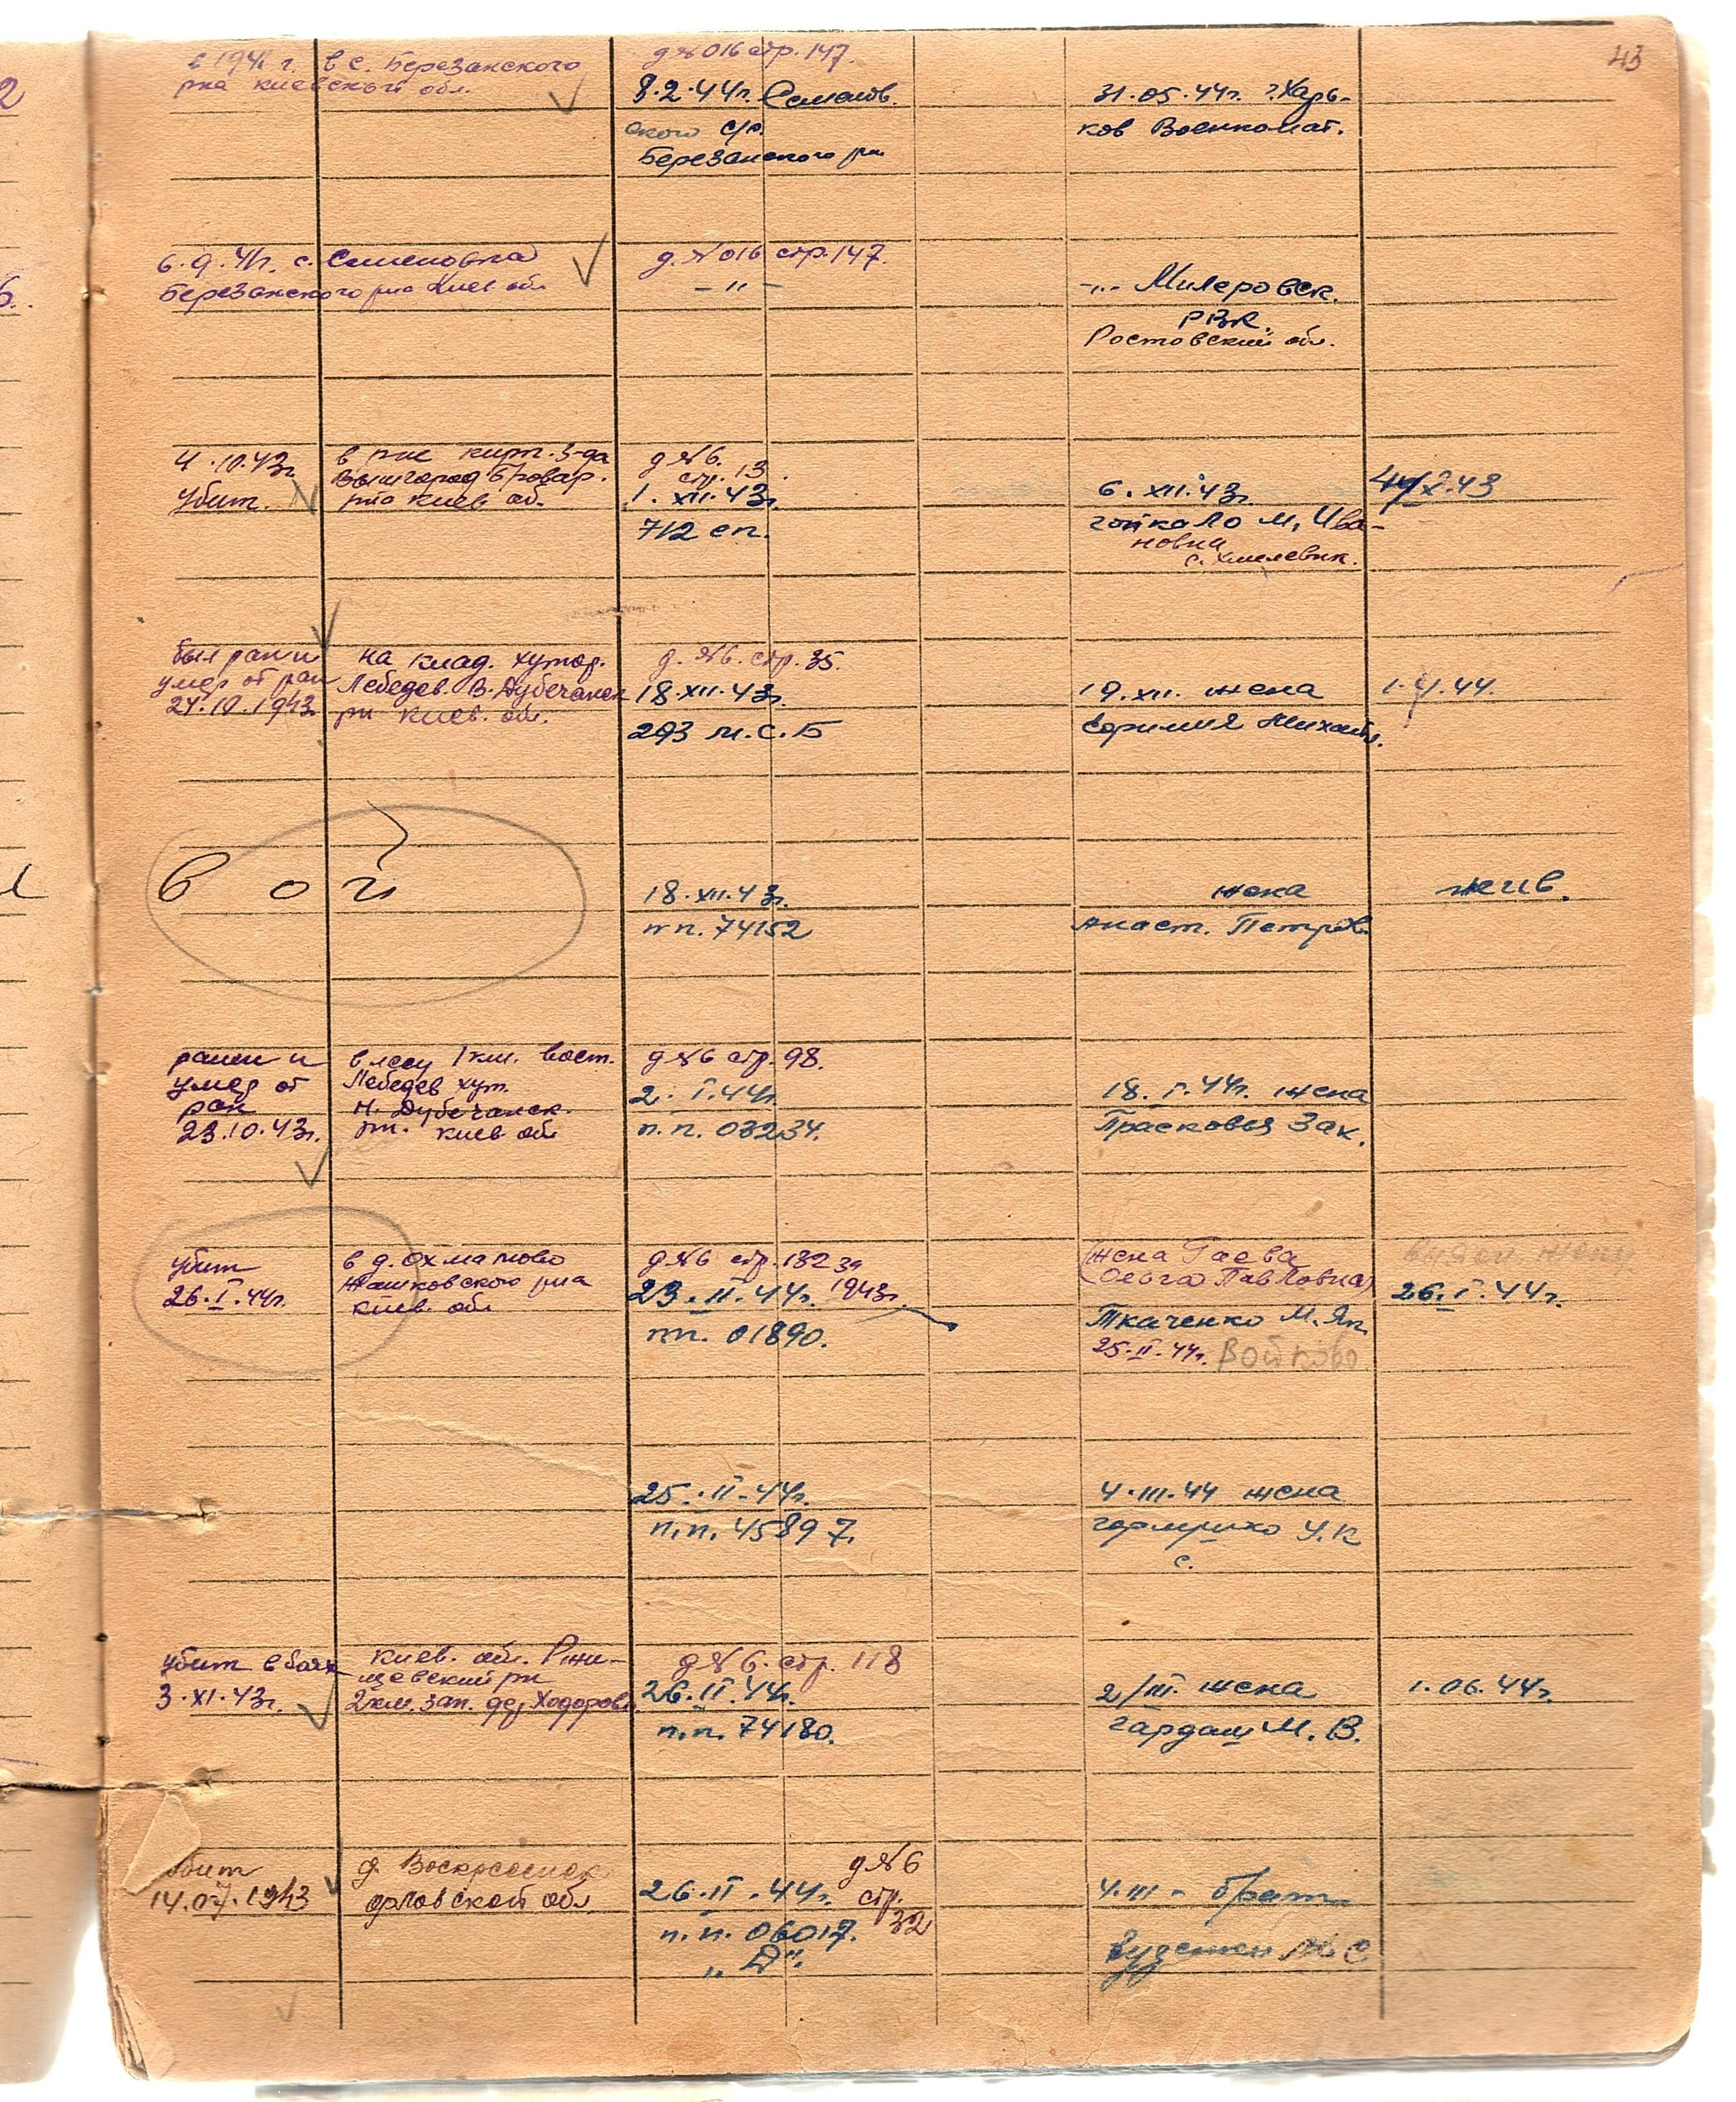 43
в 1941 г. в с. Березанского
рна киевской обл.
д №016 стр. 147.
8.2.44г. Семенов.
ского с/с.
Березанского рн
31.05.44г. г.Харь-
ков Военкомат.
6.9.41г. с. Семеновка
Березанского рна Киев. обл
д. №016 стр. 147.
- " -
-"- Милеровск.
РВК.
Ростовский обл.
4.10.43г.
убит.
в рне кирп. з-да
Вышгород Бровар.
рна Киев об.
д №6.
стр. 13.
1.XII.43г.
712 сп.
6.XII.43г.
гойкало М, Ива-
новна
с.
X.43
был ран и
умер от ран
24.10.1943
на клад. хутор.
Лебедев. В.Дубечанск
рн киев. обл.
д. №6. стр. 35.
18.XII.43г.
293 м.с.Б
19.XII. жена
Ефимия Михайл.
44.
в о й
18.XII.43г.
пп. 74152
жена
Анаст. Петров.
жив.
ранен и
умер от
ран
23.10.43г.
в лесу 1 км. вост.
Лебедев хут.
Н. Дубечанск.
рн. киев обл
д №6 стр. 98.
2.I.44г.
п.п. 03234.
18.I.44г. жена
Прасковья Зах.
убит
26.I.44г.
в д. Охматово
Жашковского рна
киев. обл
д №6 стр. 132 за
23.II.44г. 1943г.
пп. 01890.
(жена Гаева
(Ольга Павловна)
Ткаченко М. Як.
25.II.44г. Войково
26.I.44г.
25.II.44г.
п.п. 45897.
4.III.44 жена
У.К
с.
убит в боях
3.XI.43г.
киев. обл. Ржи-
щевский рн
2км. зап. дер Ходоров.
д №6. стр. 118
26.II.44г.
п.п. 74180.
2/III. жена
гардаш М. В.
1.06.44г.
убит
14.07.1943
д. Воскресенск
орловской обл.
д №6
стр.
32
26.II.44г.
п.п. 06017.
„Д".
4.III - брат